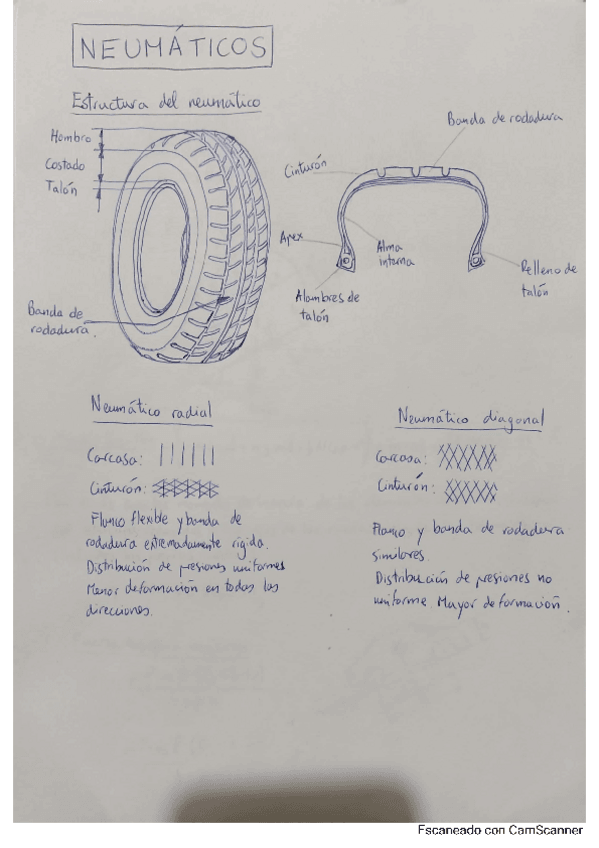 NEUMÁTICOS
Estructura del neumático
Hombro
Costado
Talón
Banda de
rodadura.
Banda de rodadura
Cinturón
Apex
Alma
interna
Alambres de
talón
Relleno de
talón
Neumático radial
Carcasa:
Cinturón:
Flanco flexible y banda de
rodadura extremadamente rígida.
Distribución de presiones uniformes
Menor deformación en todas las
direcciones.
Neumático diagonal
Carcasa:
Cinturón:
Flanco y banda de rodadura
similares.
Distribución de presiones no
uniforme. Mayor deformación.
Escaneado con CamScanner